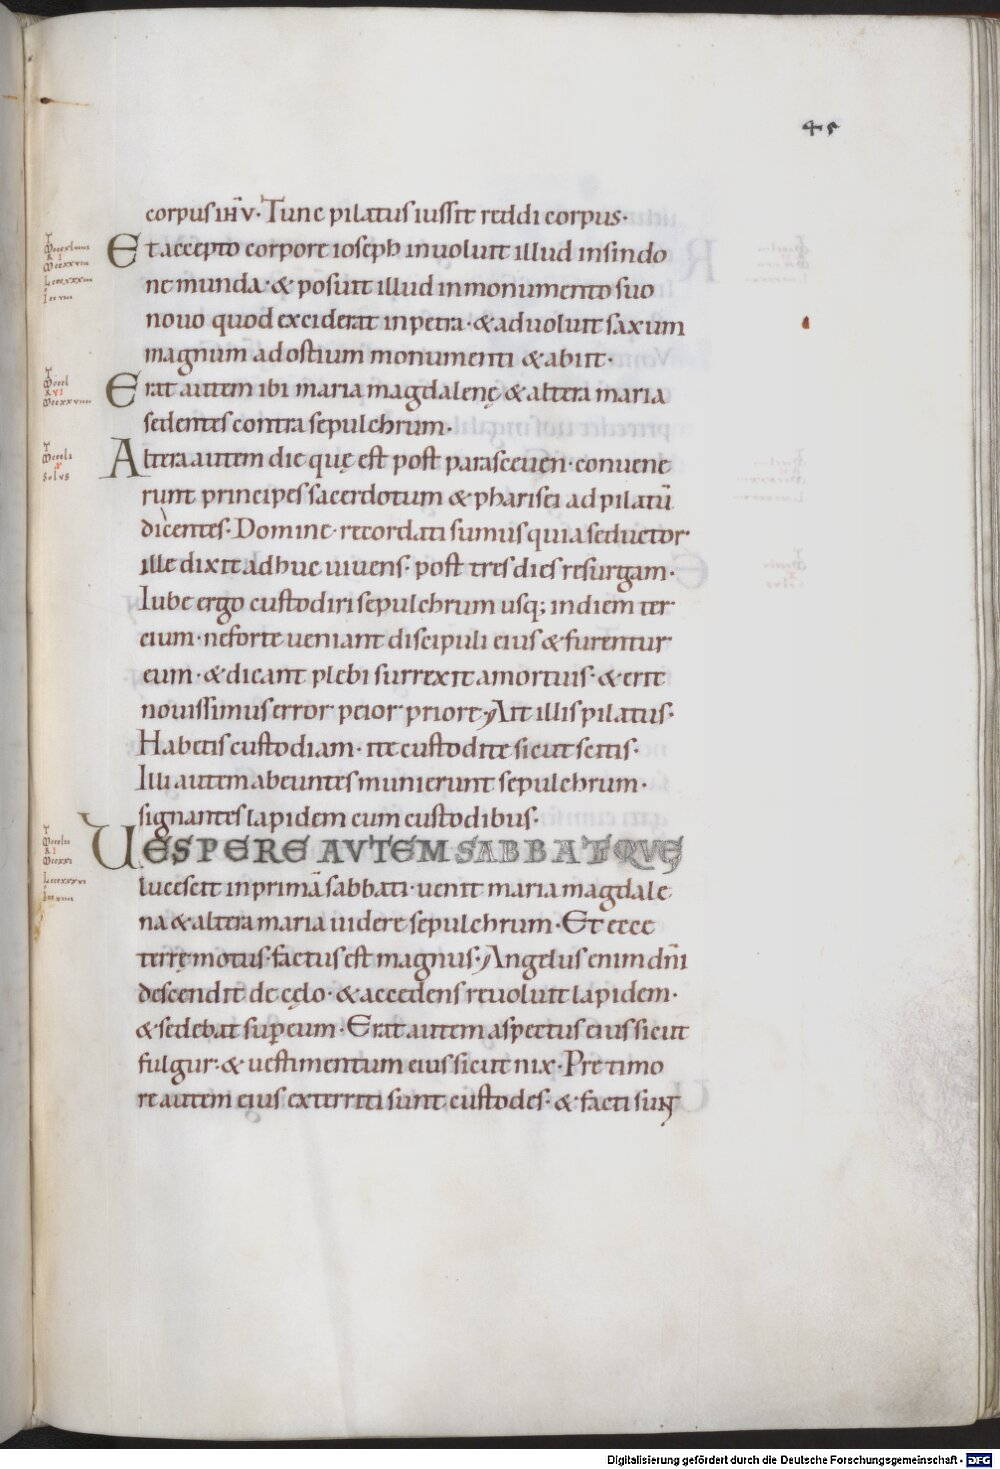 45
corpus ihv̄· Tunc pilatus iussit reddi corpus·
Et accepto corpore ioseph inuoluit illud insindo
ne munda· & posuit illud inmonumento suo
nouo quod exciderat inpetra· & aduoluit saxum
magnum ad ostium monumenti & abiit·
Erat autem ibi maria magdalenę & altera maria
sedentes contra sepulchrum·
Altera autem die quę est post parasceuen· conuene
runt principes sacerdotum & pharisei ad pilatū
dicentes· Domine· recordati sumus quia seductor
ille dixit adhuc uiuens· post tres dies resurgam·
Iube ergo custodiri sepulchrum usq; indiem ter
cium· neforte ueniant discipuli eius & furentur
eum· & dicant plebi surrexit amortuis· & erit
nouissimus error peior priore· Ait illis pilatus·
Habetis custodiam· ite custodite sicut scitis·
Illi autem abeuntes munierunt sepulchrum·
signantes lapidem cum custodibus·
VESPERE AVTEM SABBATI QVĘ
lucescit inprimā sabbati· uenit maria magdale
na & altera maria uidere sepulchrum· Et ecce
terrę motus factus est magnus· Angelus enim dn̄i
descendit de cęlo· & accedens reuoluit lapidem·
& sedebat sup̄ eum· Erat autem aspectus eius sicut
fulgur· & uestimentum eius sicut nix· Pre timo
re autem eius exterriti sunt custodes· & facti sunt
Digitalisierung gefördert durch die Deutsche Forschungsgemeinschaft - DFG